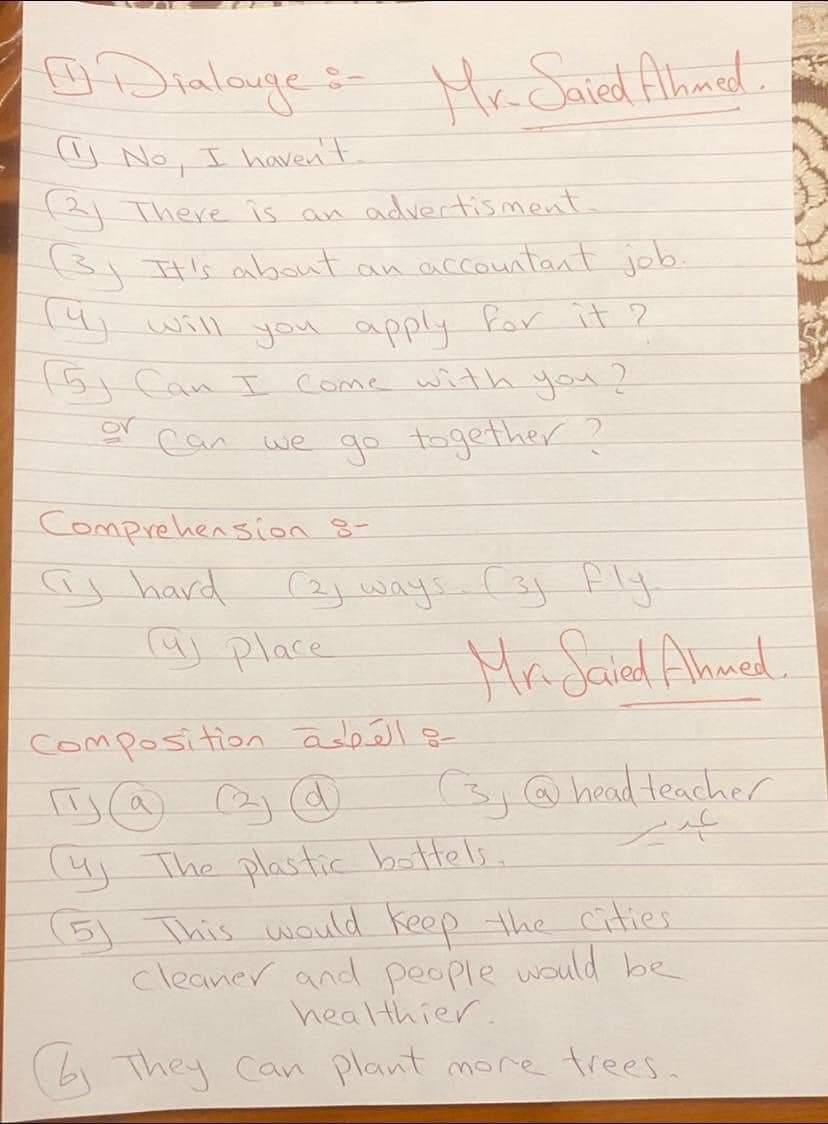 [1] Dialouge :- Mr. Saied Ahmed.
(1) No, I haven't.
(2) There is an advertisment.
(3) It's about an accountant job.
(4) Will you apply for it?
(5) Can I come with you?
or Can we go together?
Comprehension :-
(1) hard (2) ways. (3) fly.
(4) place
Mr. Saied Ahmed.
Composition القطعة :-
(1) (a) (2) (d) (3) (a) headteacher
(4) The plastic bottels.
(5) This would keep the cities
cleaner and people would be
healthier.
(6) They can plant more trees.